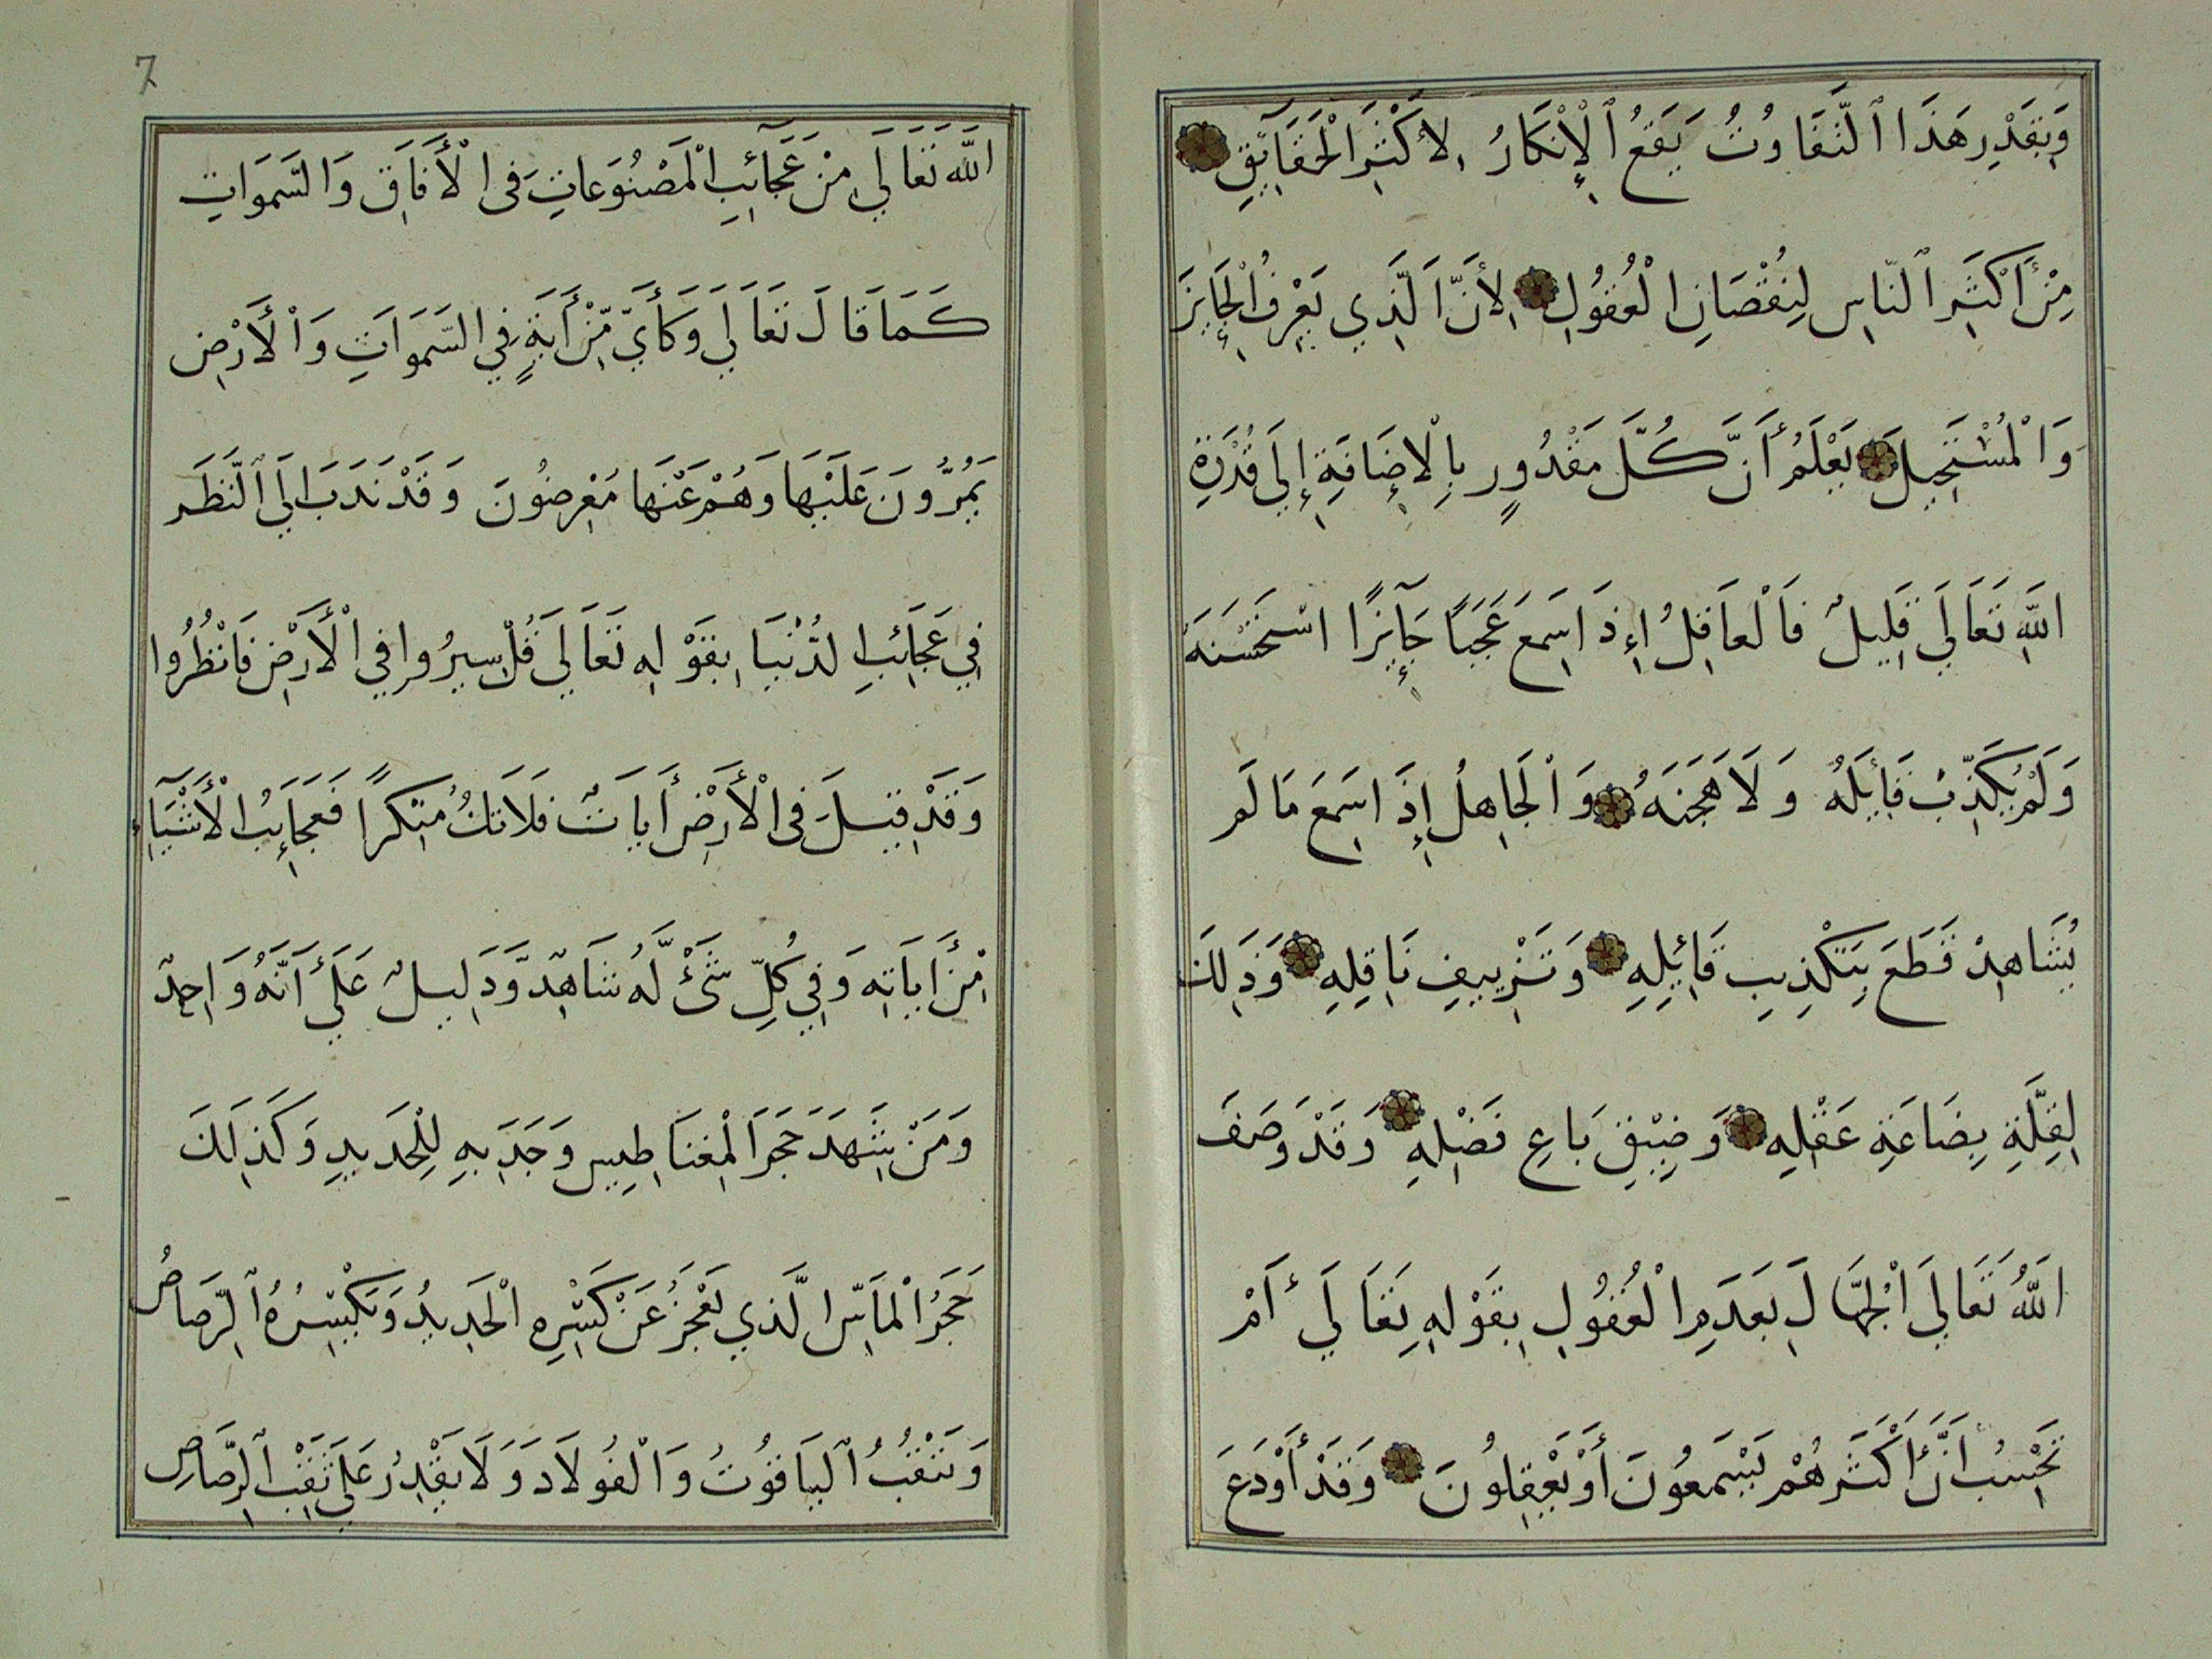 وَبِقَدْرِ هَذَا ٱلتَّفَاوُتُ يَقَعُ ٱلْإِنْكَارُ لِأَكْثَرِ الْحَقَآيِقِ
مِنْ أَكْثَرِ ٱلنَّاسِ لِنُقْصَانِ الْعُقُولِ لِأَنَّ الَّذِي يَعْرِفُ الْجَايِزَ
وَالْمُسْتَحِيلَ يَعْلَمُ أَنَّ كُلَّ مَقْدُورٍ بِالْإِضَافَةِ إِلَى قُدْرَةِ
اللهِ تَعَالَي قَلِيلٌ فَالْعَاقِلُ اِذَا سَمِعَ عَجَبًا جَآيِزًا اسْتَحْسَنَهُ
وَلَمْ يُكَذِّبْ قَايِلَهُ وَلَا هَجَنَهُ وَالْجَاهِلُ إِذَا سَمِعَ مَا لَم
يُشَاهِدْ قَطَعَ بِتَكْذِيبِ قَائِلِهِ وَتَزْيِيفِ نَاقِلِهِ وَذَلِكَ
لِقِلَّةِ بِضَاعَةِ عَقْلِهِ وَضِيْقِ بَاعِ فَضْلِهِ وَقَدْ وَصَفَ
اللهُ تَعَالَي الْجُهَّالَ بِعَدَمِ الْعُقُولِ بِقَوْلِهِ تَعَالَي أَمْ
تَحْسِبُ أَنَّ أَكْثَرَهُمْ يَسْمَعُونَ أَوْ يَعْقِلُونَ وَقَدْ أَوْدَعَ
7
اللهُ تَعَالَي مِنْ عَجَآئِبِ الْمَصْنُوعَاتِ فِى الْأَفَاقِ وَالسَّمَوَاتِ
كَمَا قَالَ تَعَالَي وَكَأَيِّ مِّنْ أَيَةٍ فِي السَّمَوَاتِ وَالْأَرْضِ
يَمُرُّونَ عَلَيْهَا وَهُمْ عَنْهَا مُعْرِضُونَ وَقَدْ نَدَبَ اِلَي ٱلنَّظَرِ
فِي عَجَائِبِ الدُّنْيَا بِقَوْلِهِ تَعَالَي قُلْ سِيرُوا فِي الْأَرْضِ فَانْظُرُوا
وَقَدْ قِيلَ فِى الْأَرْضِ أَيَاتٌ فَلَا تَكُ مُنْكِرًا فَعَجَائِبُ الْأَشْيَآءِ
مِنْ أَيَاتِهِ وَفِي كُلِّ شَىْءٍ لَّهُ شَاهِدٌ وَّدَلِيلٌ عَلَي أَنَّهُ وَاحِدٌ
وَمَنْ شَهِدَ حَجَرَ الْمِغْنَاطِيسِ وَجَدَبِهِ لِلْحَدِيدِ وَكَذَلِكَ
حَجَرُ الْمَاسِّ الَّذِي يَعْجَزُ عَنْ كَسْرِهِ الْحَدِيدُ وَيَكْسِرُهُ ٱلرِّصَاصُ
وَيَثْقُبُ ٱلْيَاقُوتُ وَالْفُولَادَ وَلَا يَقْدِرُ عَلَي ثَقْبِ ٱلرِّصَاصِ